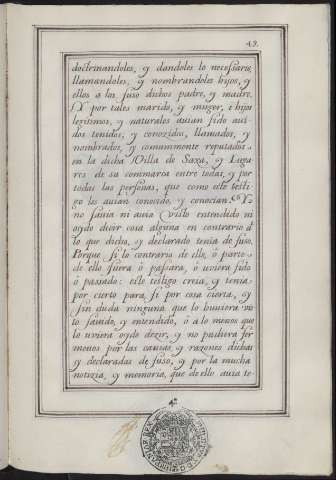 49.
doctrinandoles, y dandoles lo necessario,
llamandoles, y nombrandoles hijos, y
ellos a los suso dichos padre, y madre.
Y por tales marido, y muger, e hijos
legitimos, y naturales avian sido avi-
dos tenidos, y conozidos, llamados, y
nombrados, y comunmente reputados
en la dicha Villa de Saxa, y Luga
res de su comarca entre todas, y por
todas las personas, que como este testi
go les avian conocido, y conocian. Yo
no savia ni avia visto entendido ni
oydo dezir cosa alguna en contrario á
lo que dicho, y declarado tenia de suso.
Porque si lo contrario de ello, ó parte
de ello fuera ó pasara, ó uviera sido
ó passado: este testigo creia, y tenia
por cierto para si por cosa cierta, y
sin duda ninguna que lo huviera vis
to savido, y entendido, ó a lo menos que
lo uviera oydo dezir, y no pudiera ser
menos por las causas, y razones dichas
y declaradas de suso, y por la mucha
notizia, y memoria, que de ello avia te-